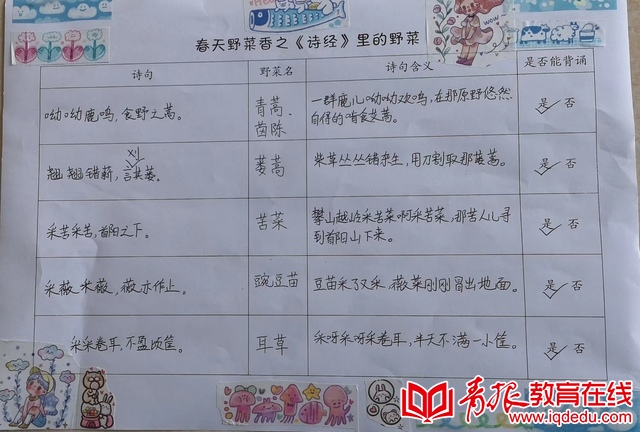 春天野菜香之《诗经》里的野菜
诗句 野菜名 诗句含义 是否能背诵
呦呦鹿鸣，食野之蒿。 青蒿、茵陈 一群鹿儿呦呦欢鸣，在那原野悠然自得的啃食艾蒿。 是 否
翘翘错薪，言刈其蒌。 蒌蒿 柴草丛丛错杂生，用刀割取那蒌蒿。 是 否
采苦采苦，首阳之下。 苦菜 攀山越岭采苦菜啊采苦菜，那苦人儿寻到首阳山下来。 是 否
采薇采薇，薇亦作止。 豌豆苗 豆苗采了又采，薇菜刚刚冒出地面。 是 否
采采卷耳，不盈顷筐。 耳草 采呀采呀采卷耳，半天不满一小筐。 是 否
WOW
青报教育在线
www.iqdedu.com